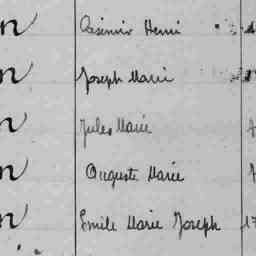 n Casimir Henri
n Joseph Marie
n Jules Marie
n Auguste Marie
n Emile Marie Joseph 17